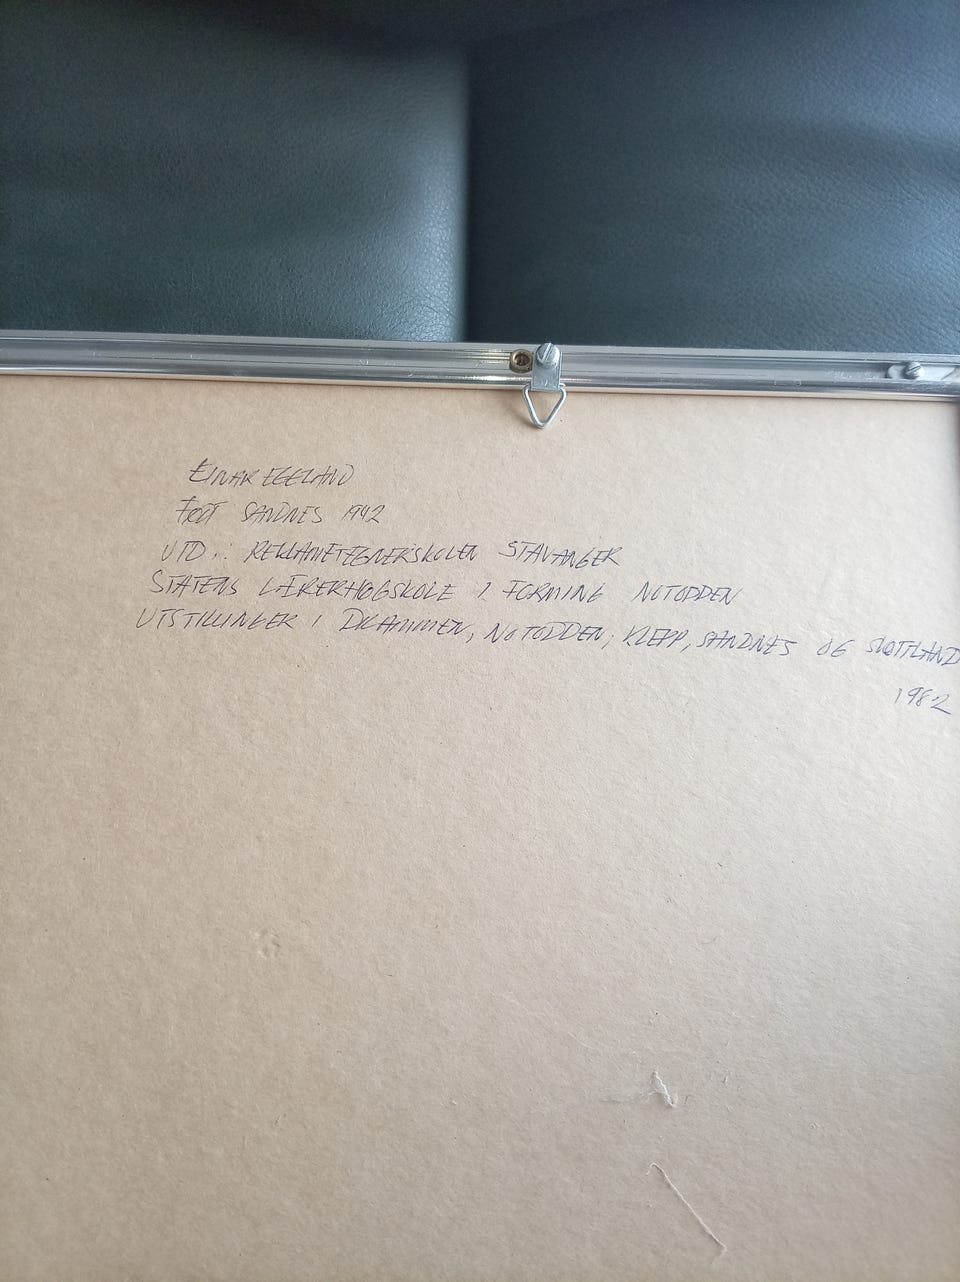 EINAR EGELAND
FØDT SANDNES 1942
UTD.: REKLAMETEGNERSKOLEN STAVANGER
STATENS LÆRERHØGSKOLE I FORMING NOTODDEN
UTSTILLINGER I DRAMMEN, NOTODDEN, KLEPP, SANDNES OG SKOTTLAND
1982